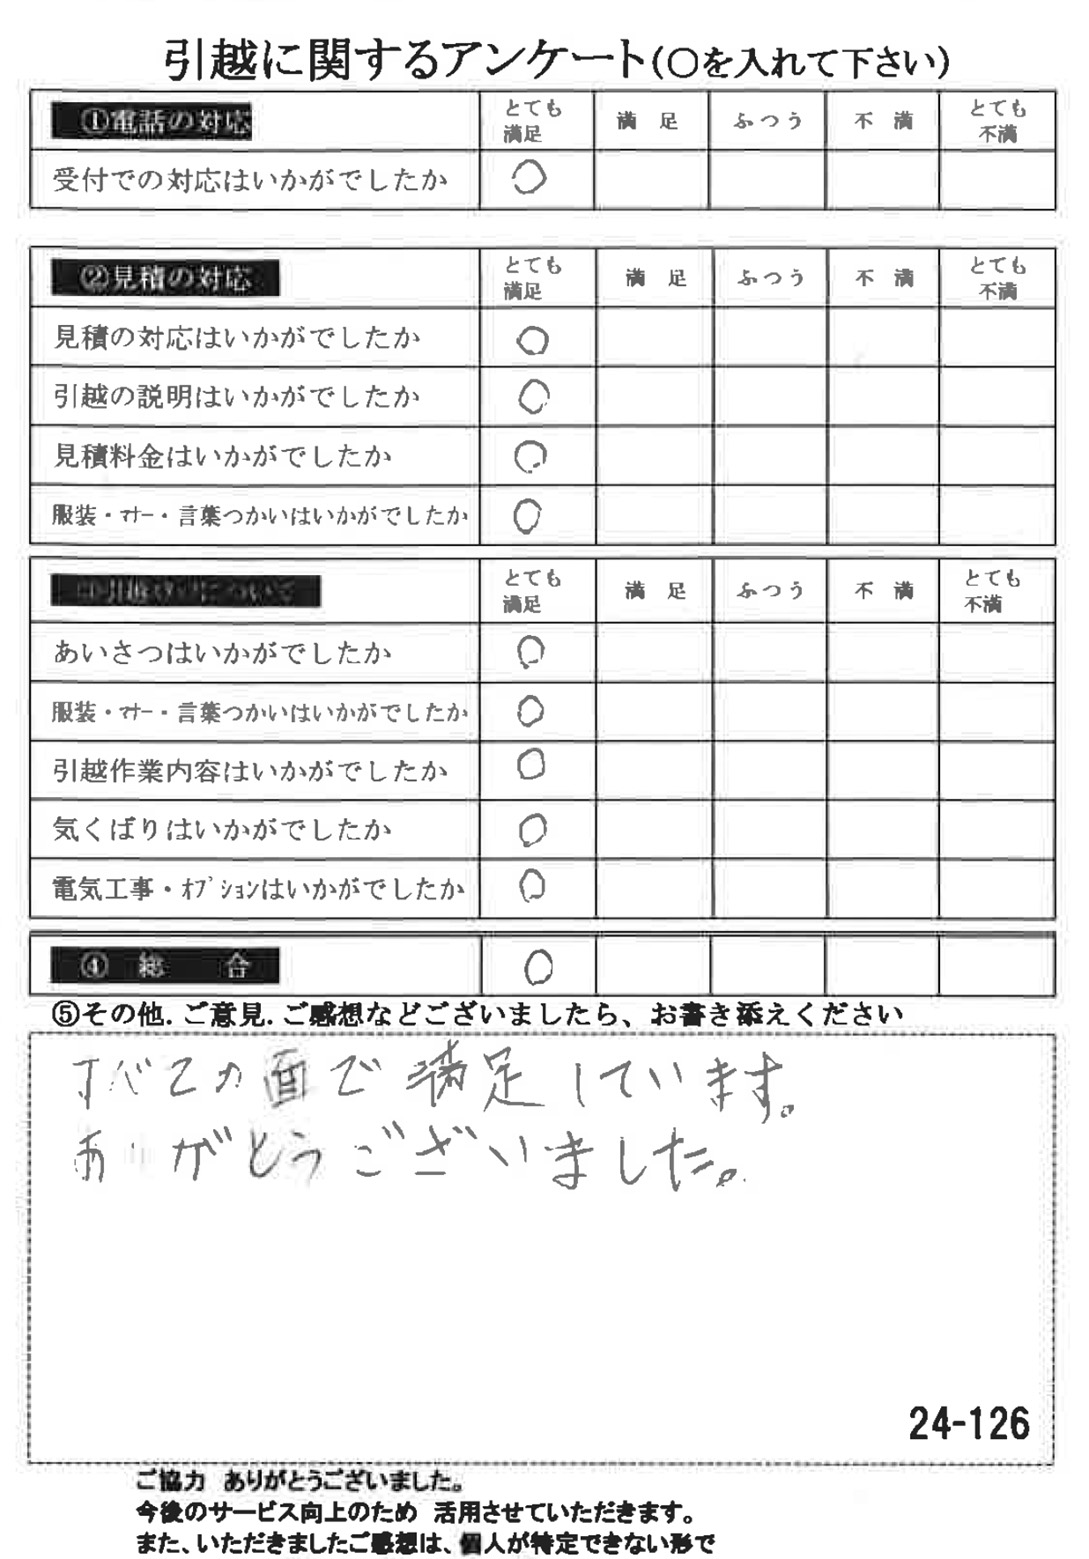 引越に関するアンケート(〇を入れて下さい)
①電話の対応 とても満足 満足 ふつう 不満 とても不満
受付での対応はいかがでしたか ○
②見積の対応 とても満足 満足 ふつう 不満 とても不満
見積の対応はいかがでしたか ○
引越の説明はいかがでしたか ○
見積料金はいかがでしたか ○
服装・マナー・言葉つかいはいかがでしたか ○
について とても満足 満足 ふつう 不満 とても不満
あいさつはいかがでしたか ○
服装・マナー・言葉つかいはいかがでしたか ○
引越作業内容はいかがでしたか ○
気くばりはいかがでしたか ○
電気工事・オプションはいかがでしたか ○
④ 総 合 ○
⑤その他.ご意見.ご感想などございましたら、お書き添えください
すべての面で満足しています。
ありがとうございました。
24-126
ご協力 ありがとうございました。
今後のサービス向上のため 活用させていただきます。
また、いただきましたご感想は、個人が特定できない形で